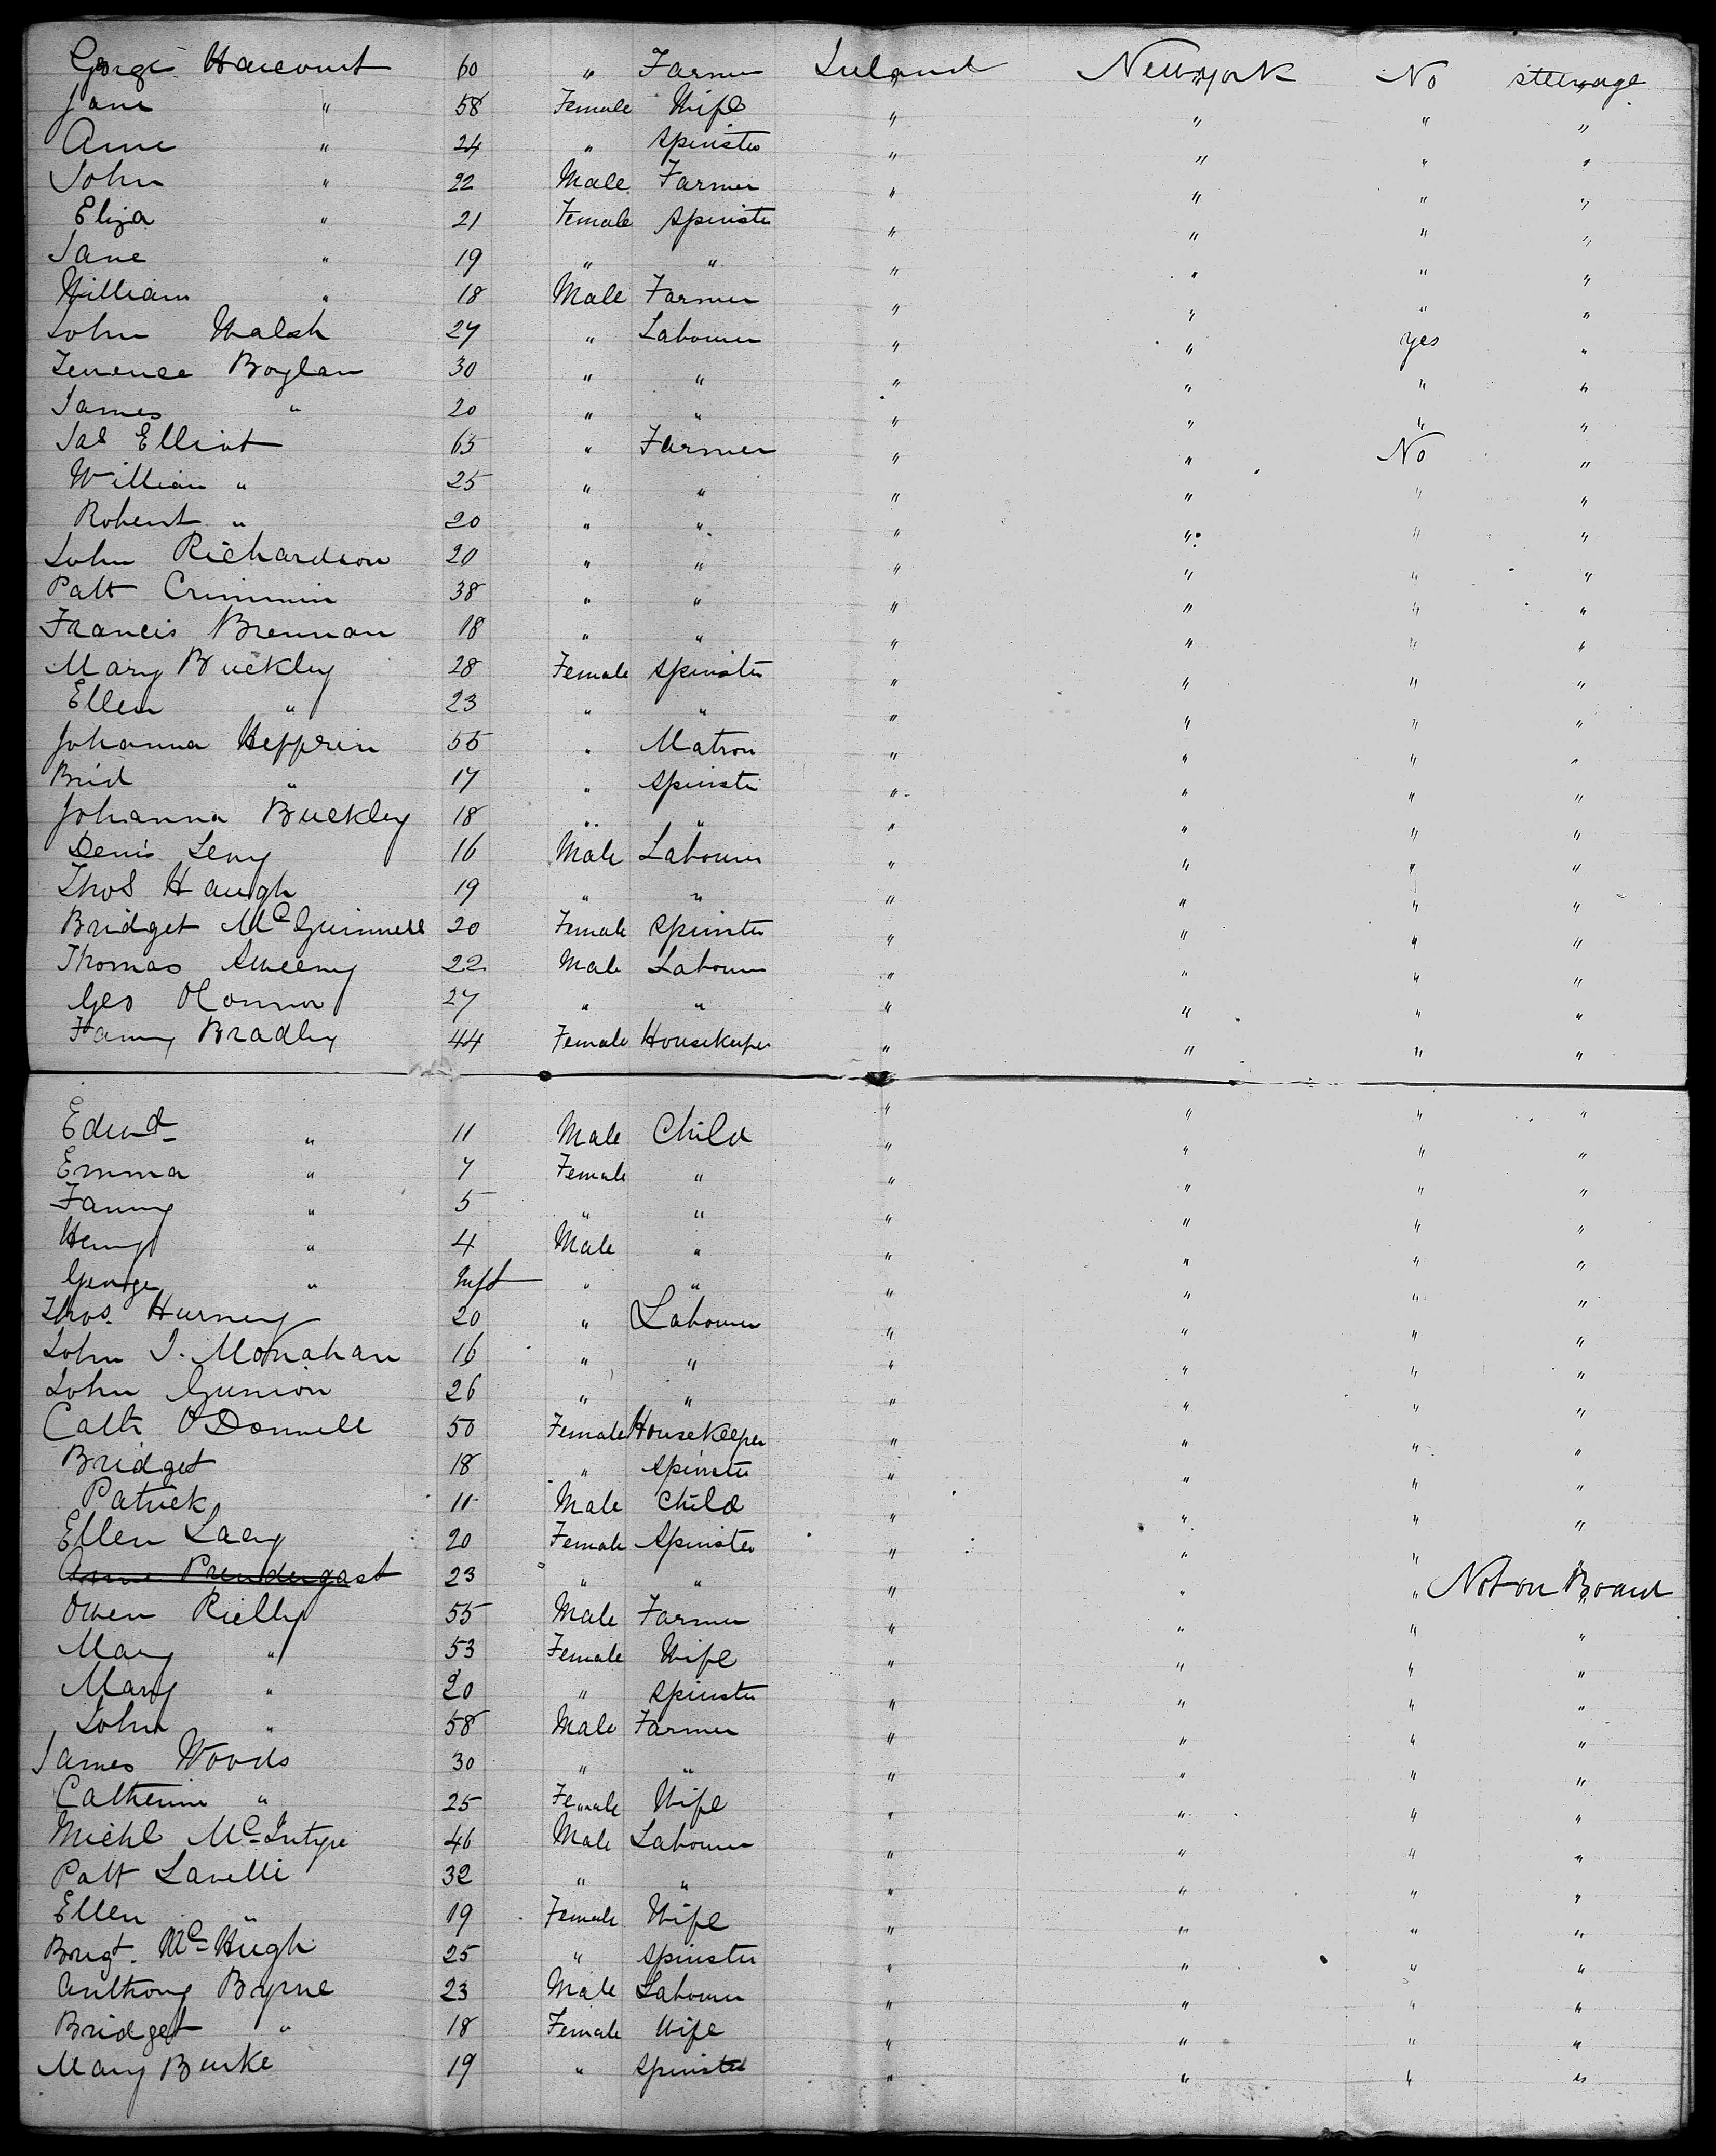 George Harcourt 60 " Farmer Ireland New York No steerage
Jane " 58 Female Wife " " " "
Anne " 24 " Spinster " " " "
John " 22 Male Farmer " " " "
Eliza " 21 Female Spinster " " " "
Jane " 19 " " " " " "
William " 18 Male Farmer " " " "
John Walsh 27 " Labourer " " yes "
Terrence Boylan 30 " " " " " "
James " 20 " " " " " "
Jas Elliot 65 " Farmer " " No "
William " 25 " " " " " "
Robert " 20 " " " " " "
John Richardson 20 " " " " " "
Patt Crimmin 38 " " " " " "
Francis Brennan 18 " " " " " "
Mary Buckley 28 Female Spinster " " " "
Ellen " 23 " " " " " "
Johanna Heffrin 55 " Matron " " " "
Brid " 17 " Spinster " " " "
Johanna Buckley 18 " " " " " "
Denis 16 Male Labourer " " " "
Thos Haugh 19 " " " " " "
Bridget McGuinnell 20 Female Spinster " " " "
Thomas Sweeny 22 Male Labourer " " " "
Geo OConnor 27 " " " " " "
Fanny Bradley 44 Female Housekeeper " " " "
Edwd " 11 Male Child " " " "
Emma " 7 Female " " " " "
Fanny " 5 " " " " " "
Henry " 4 Male " " " " "
George " Inft " " " " " "
Thos. Hurney 20 " Labourer " " " "
John J. Monahan 16 " " " " " "
John 26 " " " " " "
Cath O'Donnell 50 Female Housekeeper " " " "
Bridget 18 " Spinster " " " "
Patrick 11 Male Child " " " "
Ellen Lacy 20 Female Spinster " " " "
Anne Prendergast 23 " " " " " Not on Board
Owen Rielly 55 Male Farmer " " " "
Mary " 53 Female Wife " " " "
Mary " 20 " Spinster " " " "
John " 58 Male Farmer " " " "
James Woods 30 " " " " " "
Catherine " 25 Female Wife " " " "
Michl McIntyre 46 Male Labourer " " " "
Patt Lavelle 32 " " " " " "
Ellen " 19 Female Wife " " " "
Bridgt. McHugh 25 " Spinster " " " "
Anthony Byrne 23 Male Labourer " " " "
Bridget " 18 Female Wife " " " "
Mary Burke 19 " Spinster " " " "